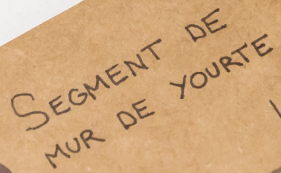 SEGMENT DE
MUR DE YOURTE